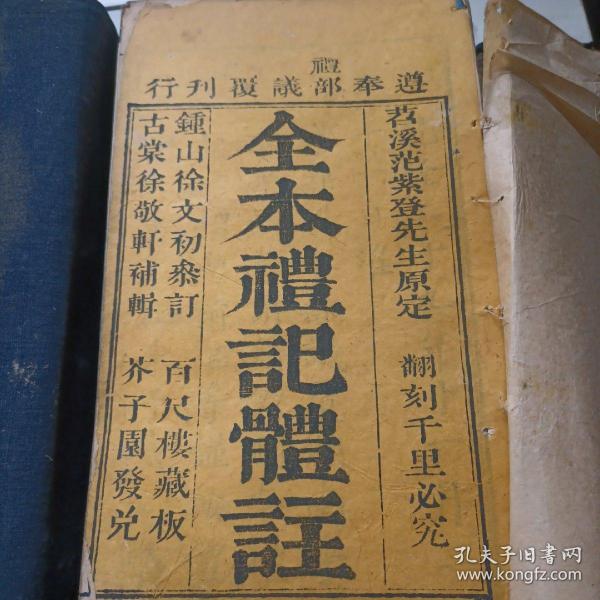 遵奉禮部議覆刊行
苕溪范紫登先生原定
翻刻千里必究
全本禮記體註
鍾山徐文初叅訂
古棠徐敬軒補輯
百尺樓藏板
芥子園發兌
孔夫子旧书网
www.kongfz.com